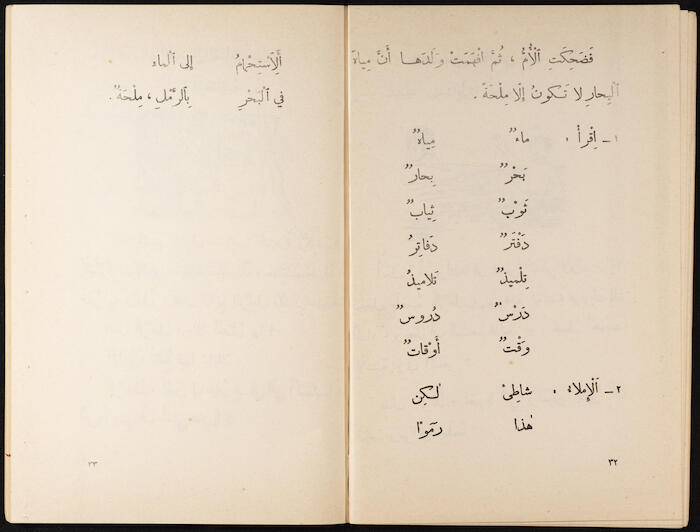 فَضَحِكَتِ ٱلْأُمُّ ، ثُمَّ افْهَمَتْ وَلَدَهـا أَنَّ مِياهَ
ٱلْبِحارِ لا تَكونُ إِلّا مِلْحَةً .
١ ـ اِقْرأْ : ماءٌ مِياهٌ
بَحْرٌ بِحارٌ
ثَوْبٌ ثِيابٌ
دَفْتَرٌ دَفاتِرُ
تِلْميذٌ تَلاميذُ
دَرْسٌ دُروسٌ
وَقْتٌ أَوْقاتٌ
٢ ـ اَلْإِملاءُ : شاطِئْ لٰكِن
هٰذا رمَوْا
٣٢
أَلِٱسْتِحْمامُ إِلى ٱلْماء
في ٱلْبَحْرِ بِٱلرَّمْلِ ، مِلْحَةٌ .
٣٣